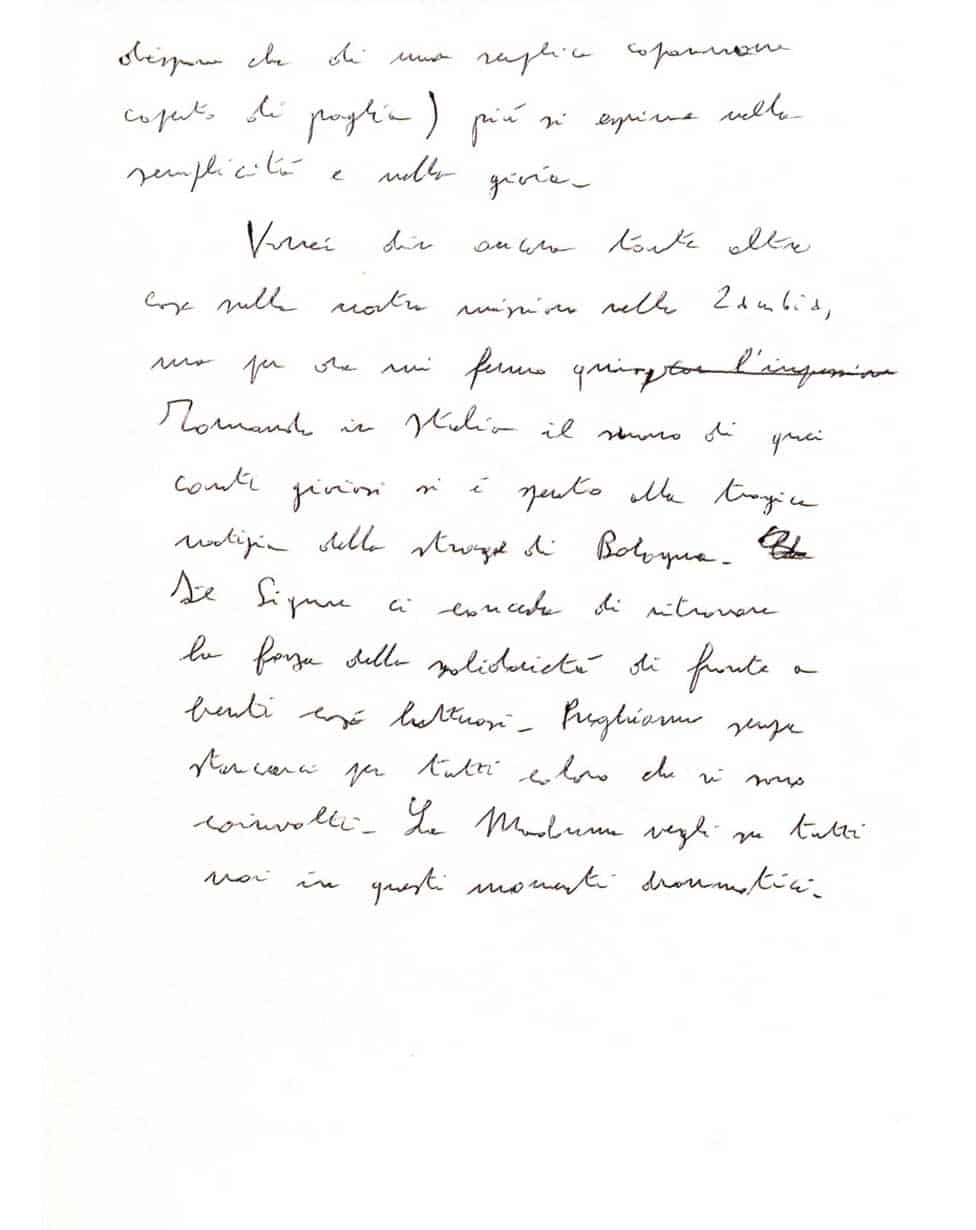 dispone che di una semplice capannone
coperto di paglia) più si esprime nella
semplicità e nella gioia.
Vorrei dire ancora tante altre
cose sulla nostra missione nella Zambia,
ma per ora mi fermo qui
Tornando in Italia il suono di quei
canti gioiosi si è spento alla tragica
notizia della strage di Bologna.
Il Signore ci conceda di ritrovare
la forza della solidarietà di fronte a
fatti così luttuosi. Preghiamo senza
stancarci per tutti coloro che vi sono
coinvolti. La Madonna vegli su tutti
noi in questi momenti drammatici.